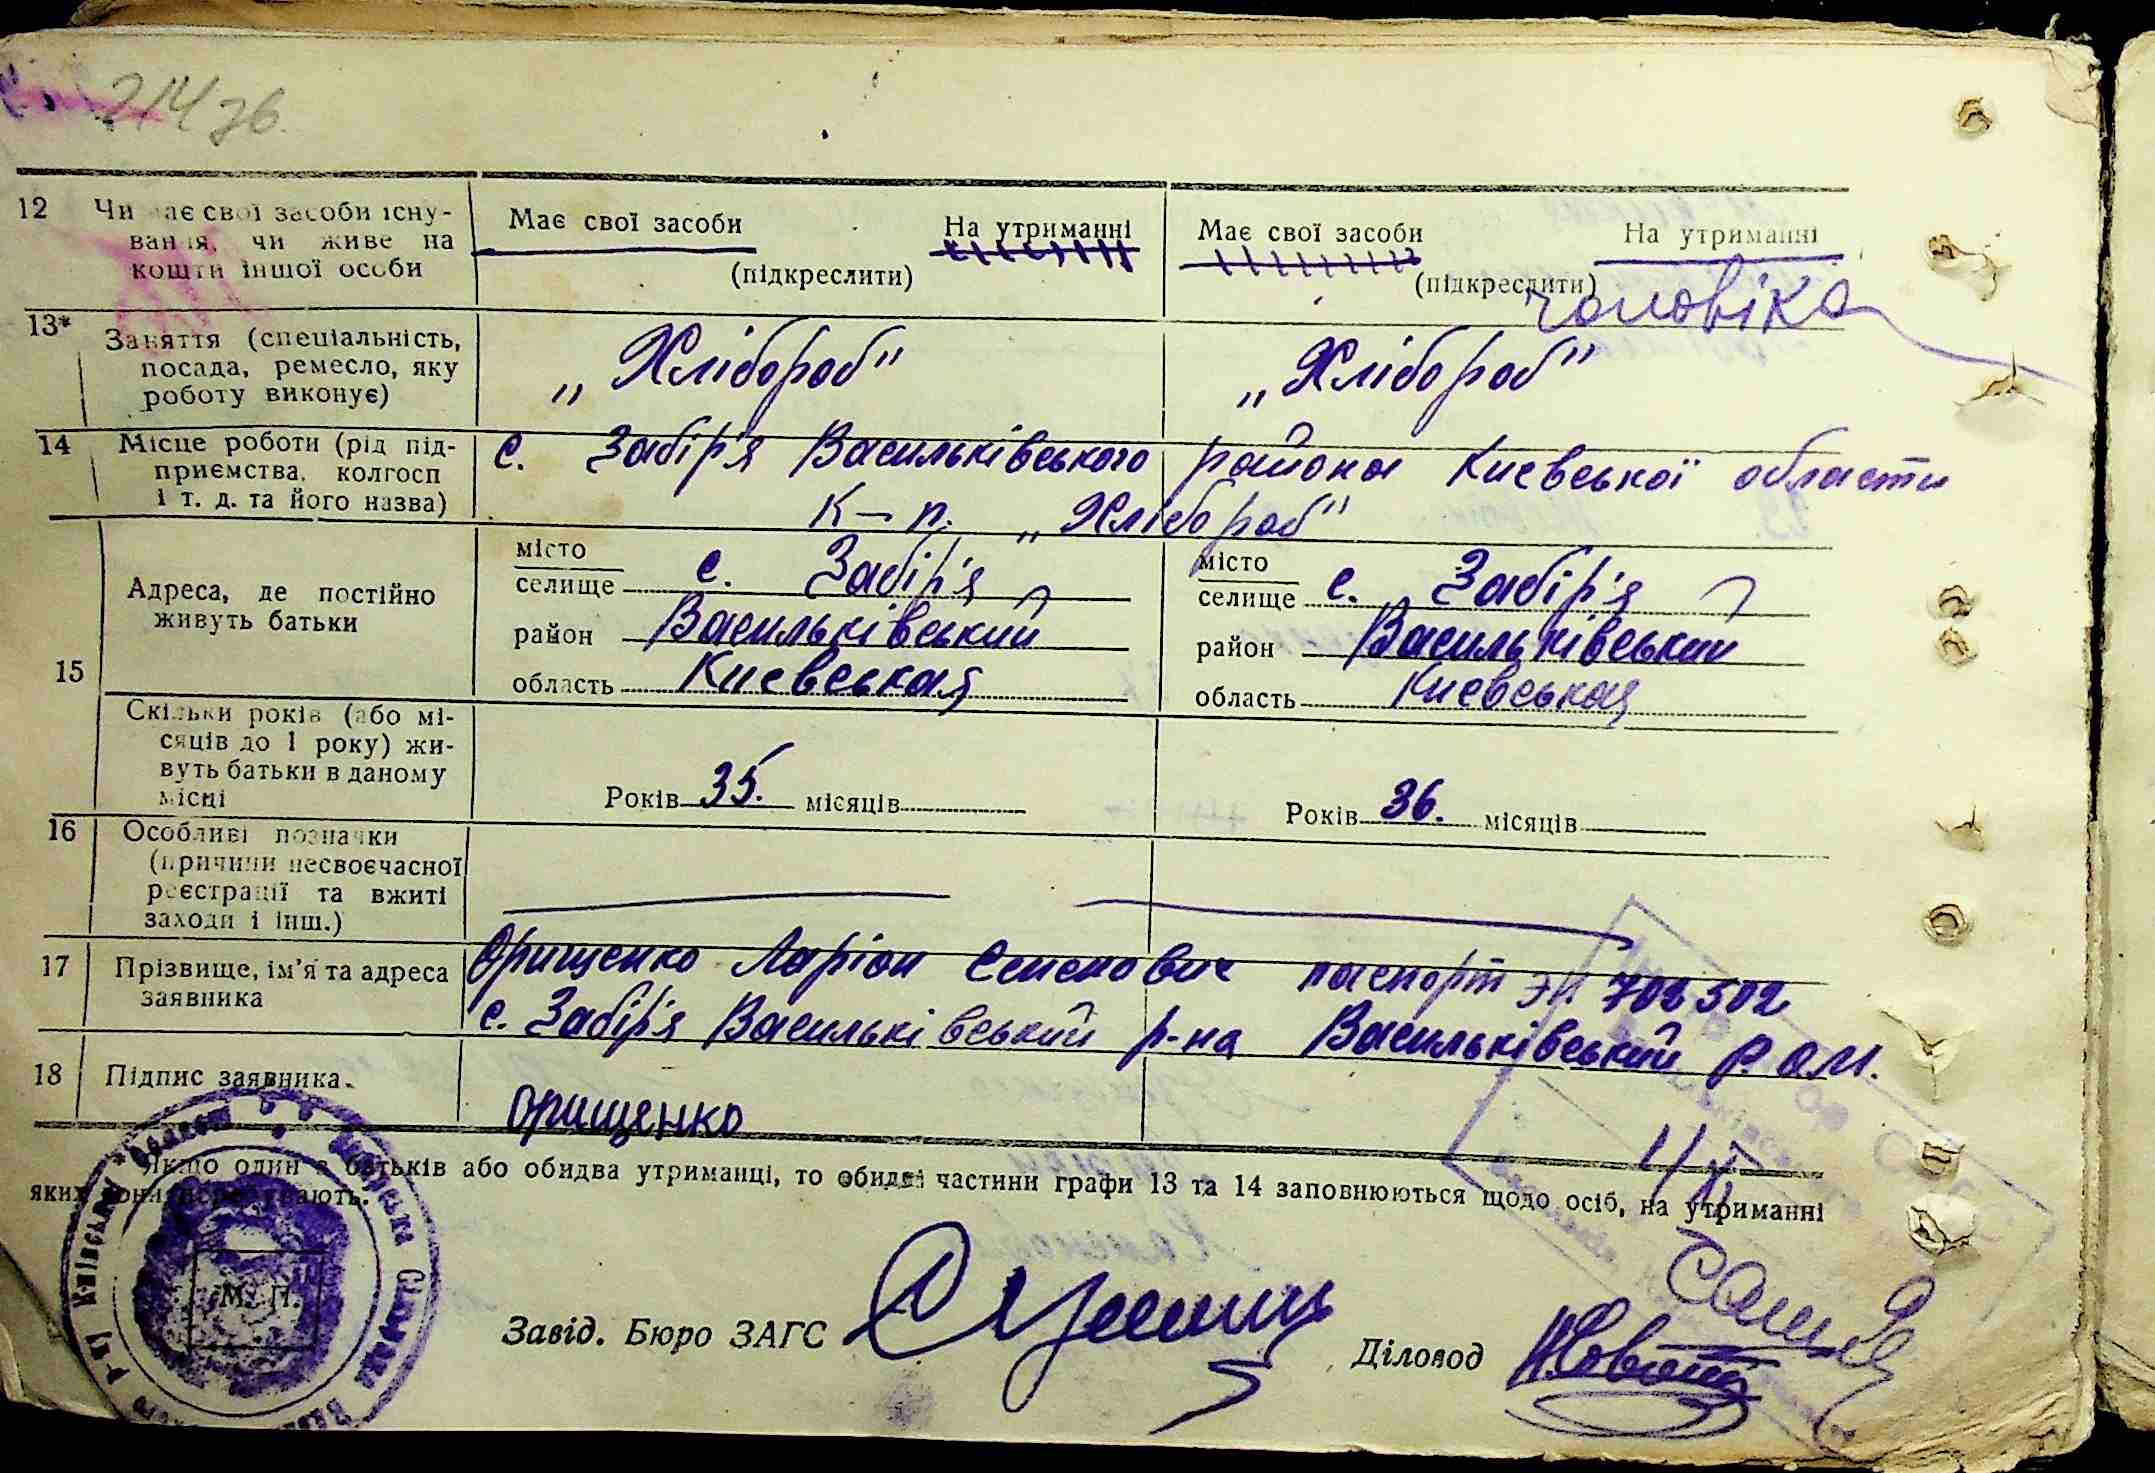 214 зв.
12 Чи має свої засоби існу- Має свої засоби На утриманні Має свої засоби На утриманні
вання, чи живе на
кошти іншої особи (підкреслити) (підкреслити) чоловіка
13* Заняття (спеціальність, „Хлібороб" „Хлібороб"
посада, ремесло, яку
роботу виконує)
14 Місце роботи (рід під- с. Забір'я Васильківського района Киевської области
приємства, колгосп
і т. д. та його назва) К-п. „Хлібороб"
15 Адреса, де постійно живуть батьки
місто
селище с. Забір'я
район Васильківський
область Киевськая
місто
селище с. Забір'я
район Васильківський
область Киевськая
Скільки років (або мі-
сяців до 1 року) жи-
вуть батьки в даному
місці
Років 35. місяців Років 36. місяців
16 Особливі позначки
(причини несвоєчасної
реєстрації та вжиті
заходи і інш.)
17 Прізвище, ім'я та адреса Орищенко Ларіон Семенович паспорт ЭП 708502
заявника с. Забір'я Васильківський р-на Васильківський Р.О.М.
18 Підпис заявника. Орищенко
Якщо один з батьків або обидва утриманці, то обидві частини графи 13 та 14 заповнюються щодо осіб, на утриманні
яких вони перебувають.
М. П.
Завід. Бюро ЗАГС
Діловод